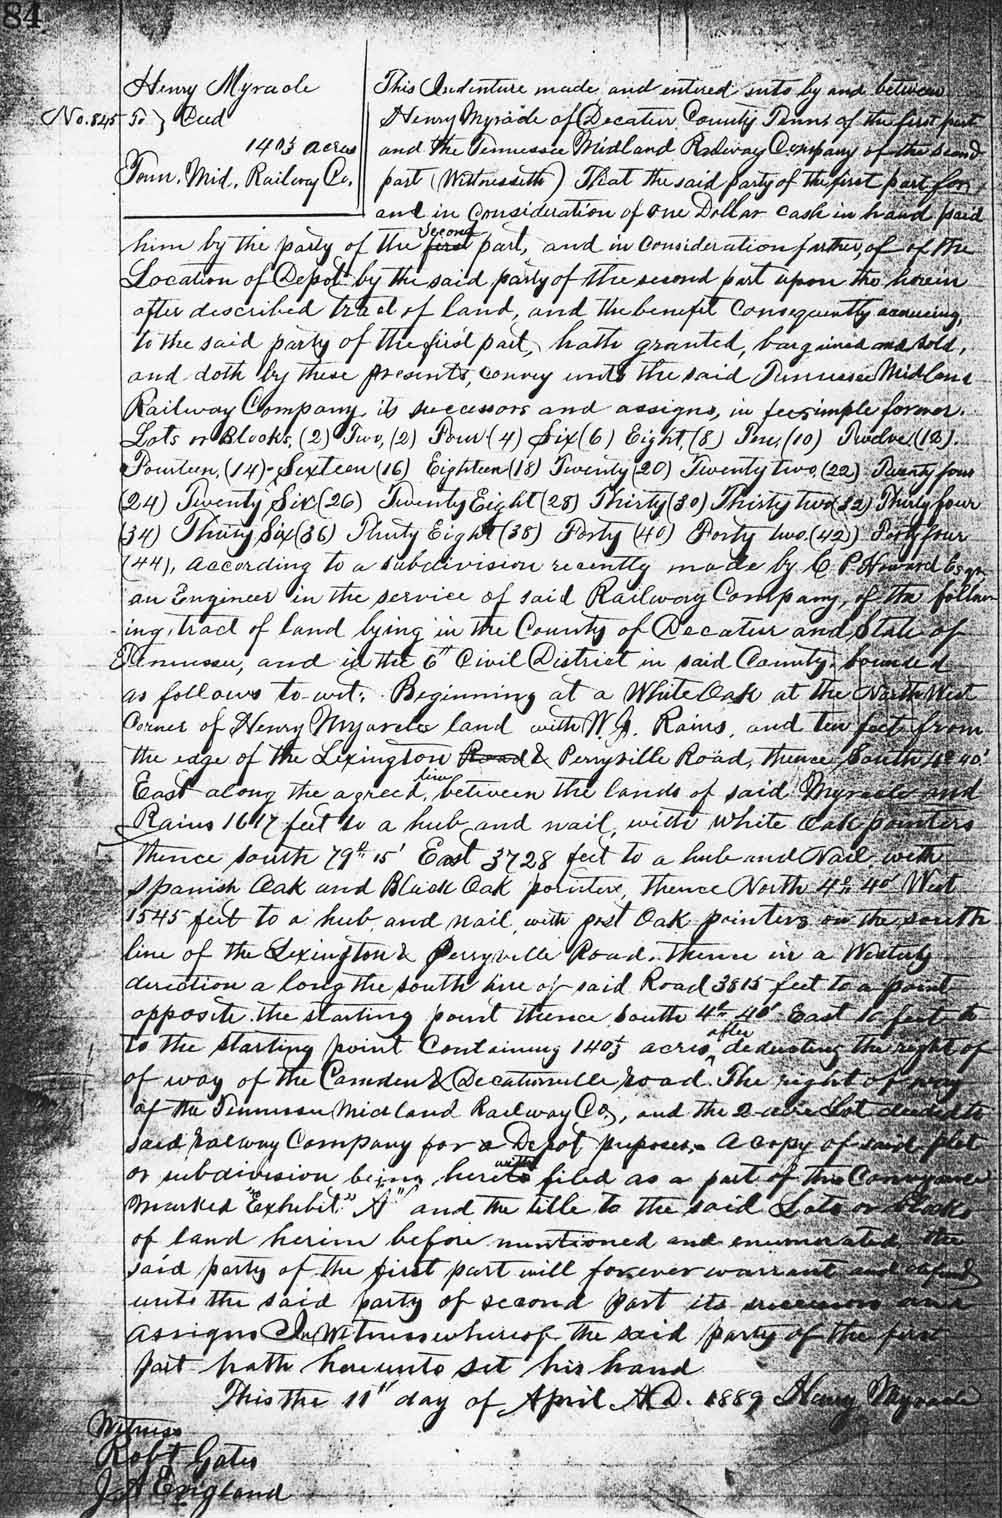 84
Henry Myracle
No. 845 To } Deed
140½ acres
Tenn. Mid. Railway Co.
This Indenture made and entered into by and between
Henry Myracle of Decatur County Tenn. of the first part
and the Tennessee Midland Railway Company of the second
part (Wittnesseth) That the said party of the first part for
and in Consideration of one Dollar cash in hand paid
him by the party of the first second part, and in consideration further, of of the
Location of Depot by the said party of the second part upon the herein
after described tract of land, and the benefit Consequently accrueing,
to the said party of the first part, hath granted, bargained and sold,
and doth by these presents, convey unto the said Tennessee Midland
Railway Company, its successors and assigns, in fee simple forever.
Lots or Blocks, (2) Two, (2) Four (4) Six (6) Eight, (8) Ten, (10) Twelve (12).
Fourteen, (14) Sixteen (16) Eighteen (18) Twenty (20) Twenty two, (22) Twenty four
(24) Twenty Six (26) Twenty Eight (28) Thirty (30) Thirty two (32) Thirty four
(34) Thirty Six (36) Thirty Eight (38) Forty (40) Forty two. (42) Forty four
(44), according to a subdivision recently made by C. P. Howard Esqr.
an Engineer in the service of said Railway Company, of the follow-
ing, tract of land lying in the County of Decatur and State of
Tennessee, and in the 6th Civil District in said County. bounded
as follows to-wit; Beginning at a White Oak at the North West
Corner of Henry Myracle land with W. J. Rains, and ten feet from
the edge of the Lexington Road & Perryville Road, thence South 4° 40'
East along the agreed line between the lands of said Myracle and
Rains 1617 feet to a hub and nail, with White Oak pointers
thence south 79° 15' East 3728 feet to a hub and Nail with
Spanish Oak and Black Oak pointers, thence North 4° 40' West
1545 feet to a hub and nail, with post Oak pointers on the south
line of the Lexington & Perryville Road. thence in a Westerly
direction a long the south line of said Road 3815 feet to a point
opposite the starting point thence South 4° 40' East 10 feet to
to the starting point Containing 140½ acres, after deducting the right of
of way of the Camden & Decaturville road. The right of way
of the Tennessee Midland Railway Co., and the 2 acre Lot deeded to
said Railway Company for a Depot purposes. A copy of said plat
or subdivision being hereto with filed as a part of this Conveyance
marked "Exhibit" "A" and the title to the said Lots or Blocks
of land herein before mentioned and enumerated, the
said party of the first part will forever warrant and defend
unto the said party of second part its successors and
assigns In Witness whereof the said party of the first
part hath hereunto set his hand
This the 11th day of April A.D. 1889 Henry Myracle
Witness
Robt Gates
J A England